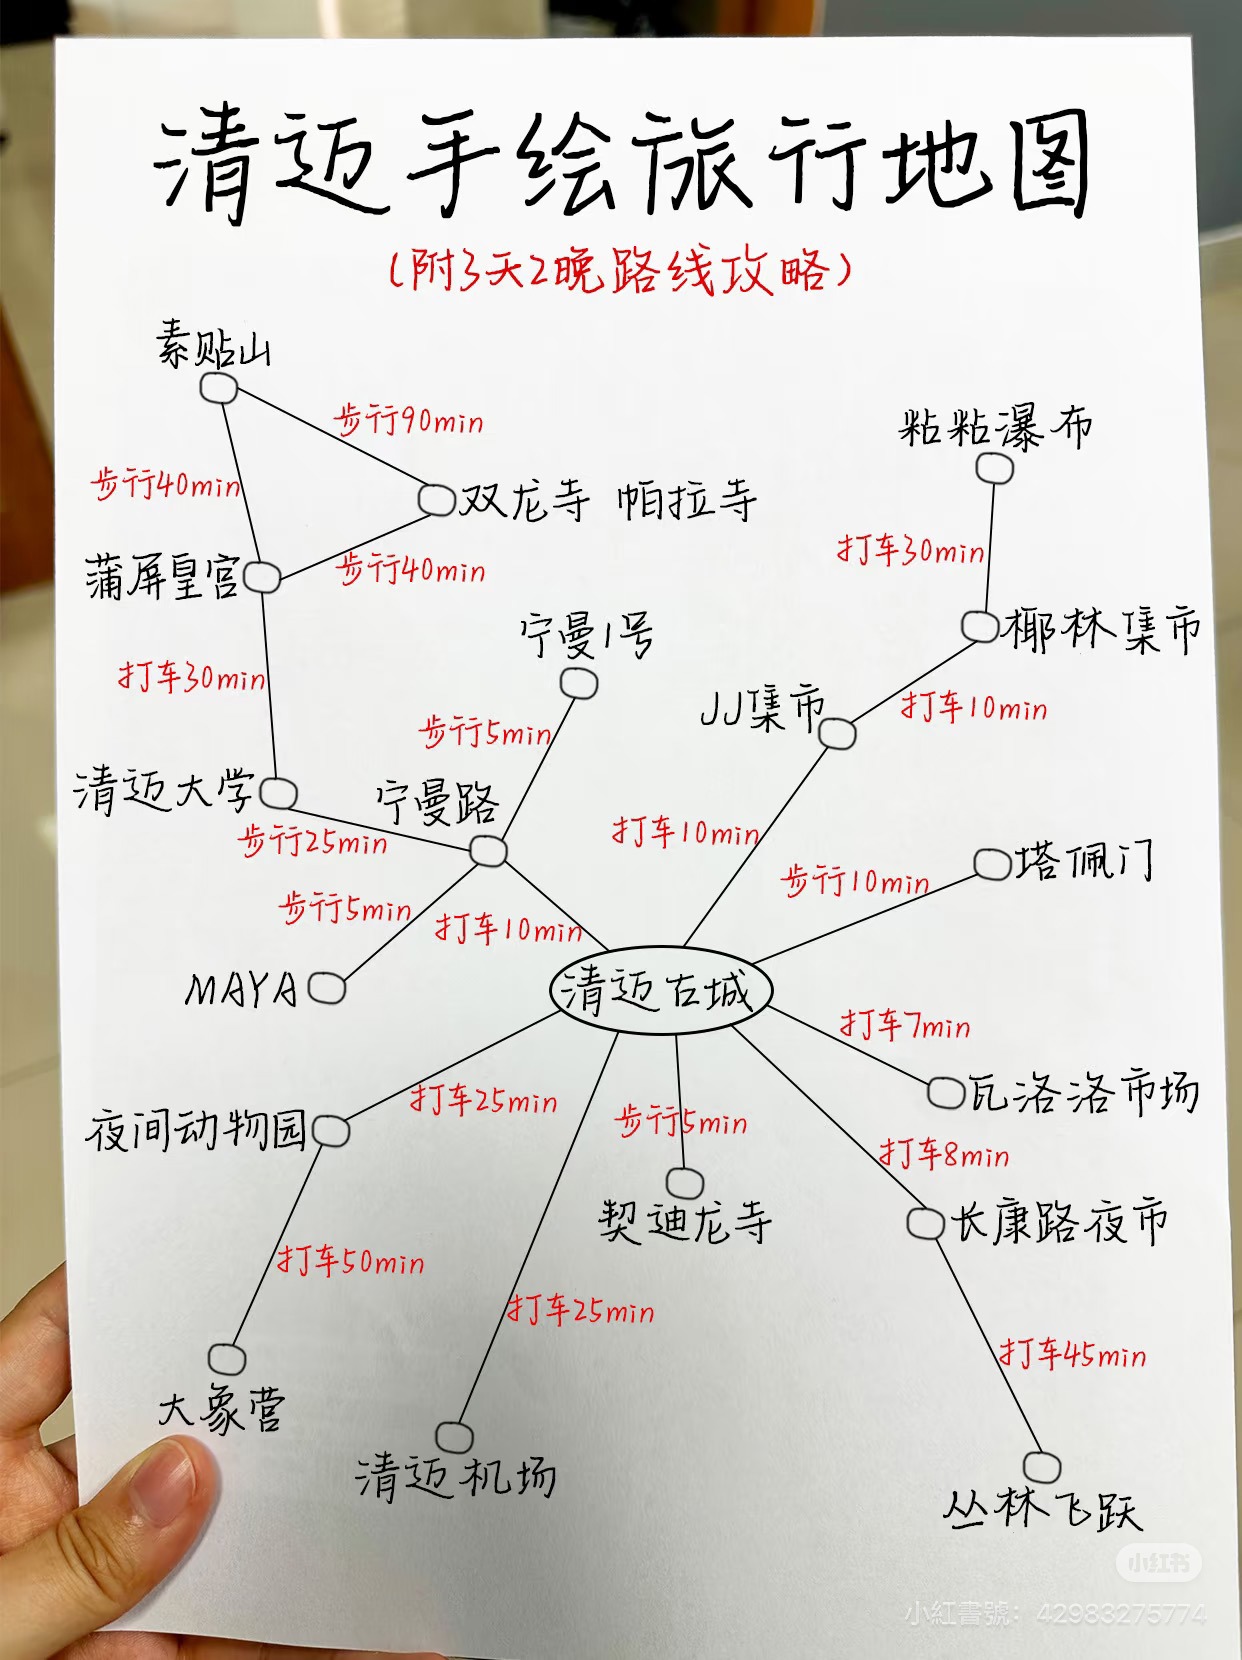 清迈手绘旅行地图
(附3天2晚路线攻略)
素贴山
步行90min
粘粘瀑布
步行40min
双龙寺 帕拉寺
打车30min
蒲屏皇宫
步行40min
宁曼1号
椰林集市
打车30min
JJ集市
打车10min
步行5min
清迈大学
宁曼路
步行25min
打车10min
塔佩门
步行10min
步行5min
打车10min
MAYA
清迈古城
打车7min
打车25min
瓦洛洛市场
夜间动物园
步行5min
打车8min
契迪龙寺
长康路夜市
打车50min
打车25min
打车45min
大象营
清迈机场
丛林飞跃
小红书
小紅書號：42983275774